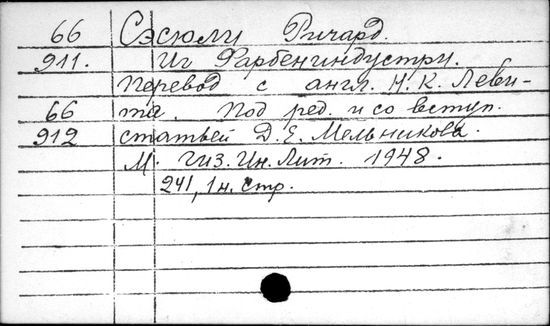 66 Сэсюли Ричард.
911. Иг Фарбениндустри.
Перевод с англ. Н. К. Леви-
66 та. Под ред. и со вступ.
912 статьей Д. Е. Мельникова.
М. Гиз. Ин. Лит. 1948.
241, 1 н. стр.